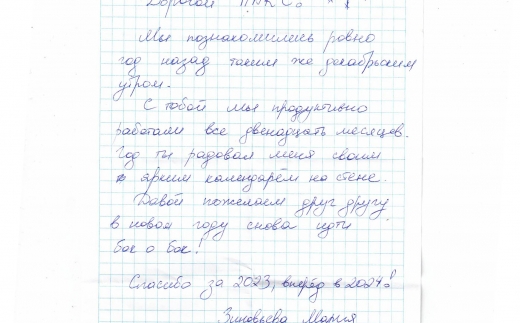 Дорогой
Мы познакомились ровно
год назад таким же декабрьским
утром.
С тобой мы продуктивно
работали все двенадцать месяцев.
Год ты радовал меня своим
ярким календарём на стене.
Давай пожелаем друг другу
в новом году снова идти
бок о бок!
Спасибо за 2023, вперёд в 2024!
Зиновьева Мария